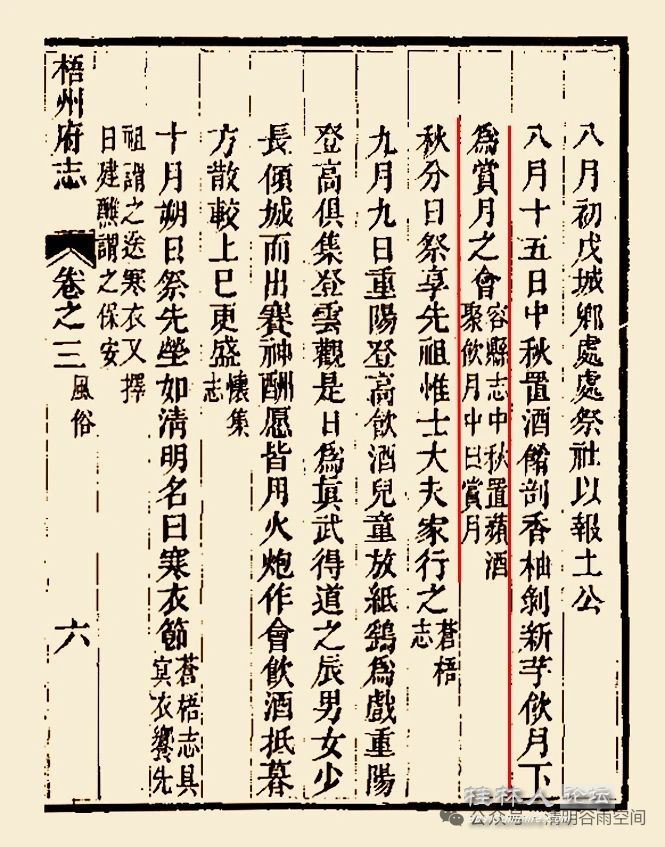 八月初戊城鄉處處祭社以報土公
八月十五日中秋置酒餚剖香柚剝新芋飲月下
為賞月之會容縣志中秋置蘋酒
聚飲月中曰賞月
秋分日祭享先祖惟士大夫家行之蒼梧
志
九月九日重陽登高飲酒兒童放紙鷂為戲重陽
登高俱集登雲觀是日為真武得道之辰男女少
長傾城而出賽神酬愿皆用火炮作會飲酒抵暮
方散較上巳更盛懷集
志
十月朔日祭先塋如清明名曰寒衣節蒼梧志具
寘衣饗先
祖謂之送寒衣又擇
日建醮謂之保安
梧州府志
卷之三風俗
六
桂林人论坛
公众号
清明谷雨空间